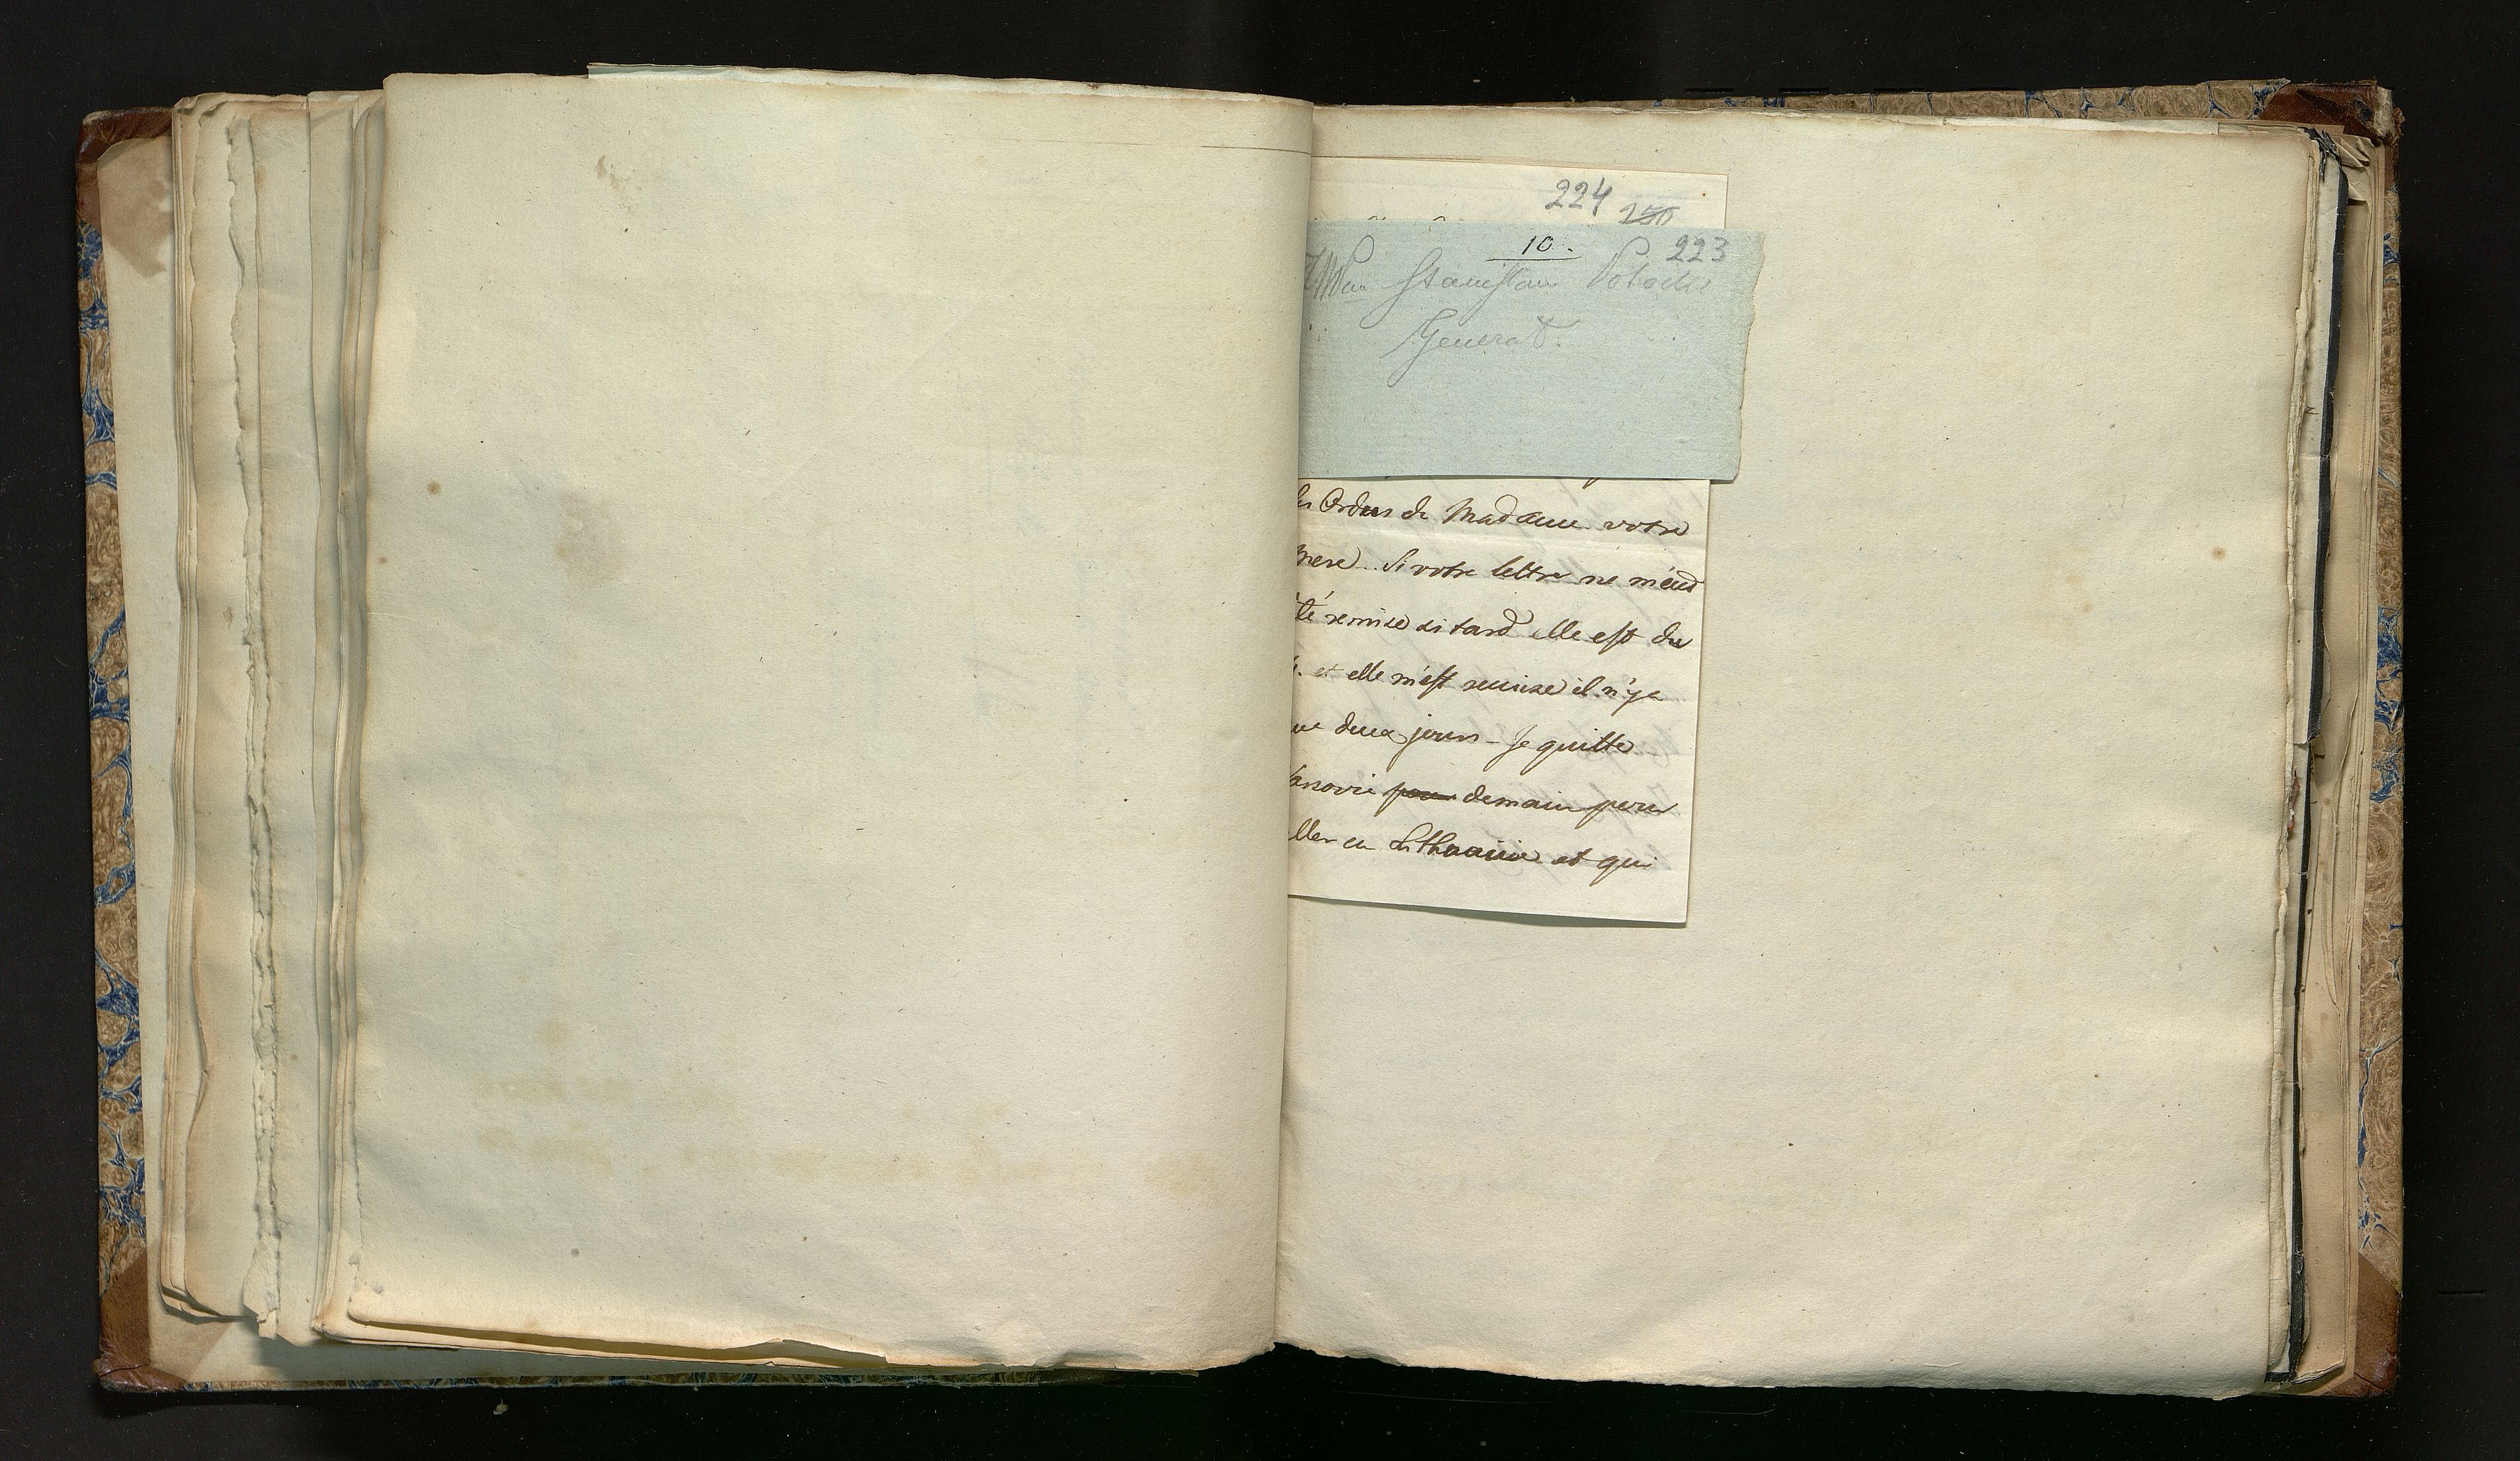 224
250
10.
223
Stanisław Potocki
Generał.
les Ordres de Madame votre
mere. Si votre lettre ne m'eud
été remise si tard elle est du
et elle m'est remise il n'y a
que deux jours - Je quitte
Varsovie pour demain pour
aller en Lithuanie et qui